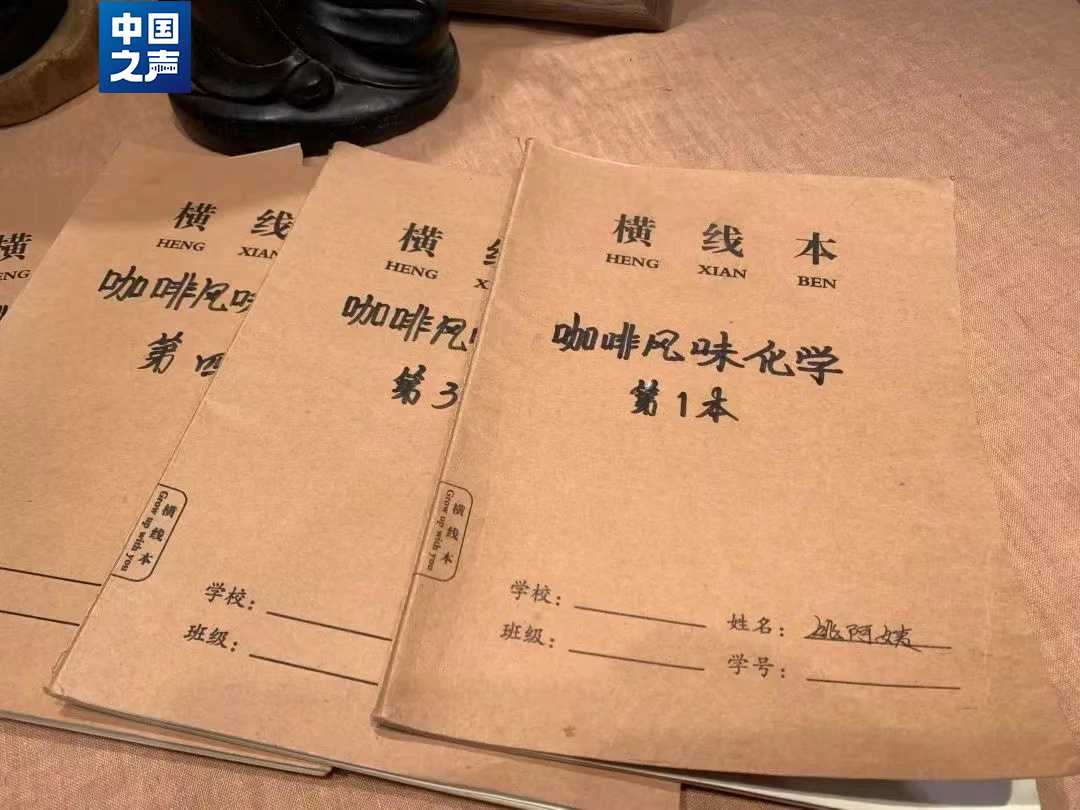 中国
之声
横
ENG
横 线
HENG XIAN
咖啡风味
第四
横线本
Grow up with you
横
HENG X
咖啡风味
第3
学校：
班级：
横线本
Grow up with you
横 线 本
HENG XIAN BEN
咖啡风味化学
第1本
学校：
班级：
姓名：姚阿姨
学号：